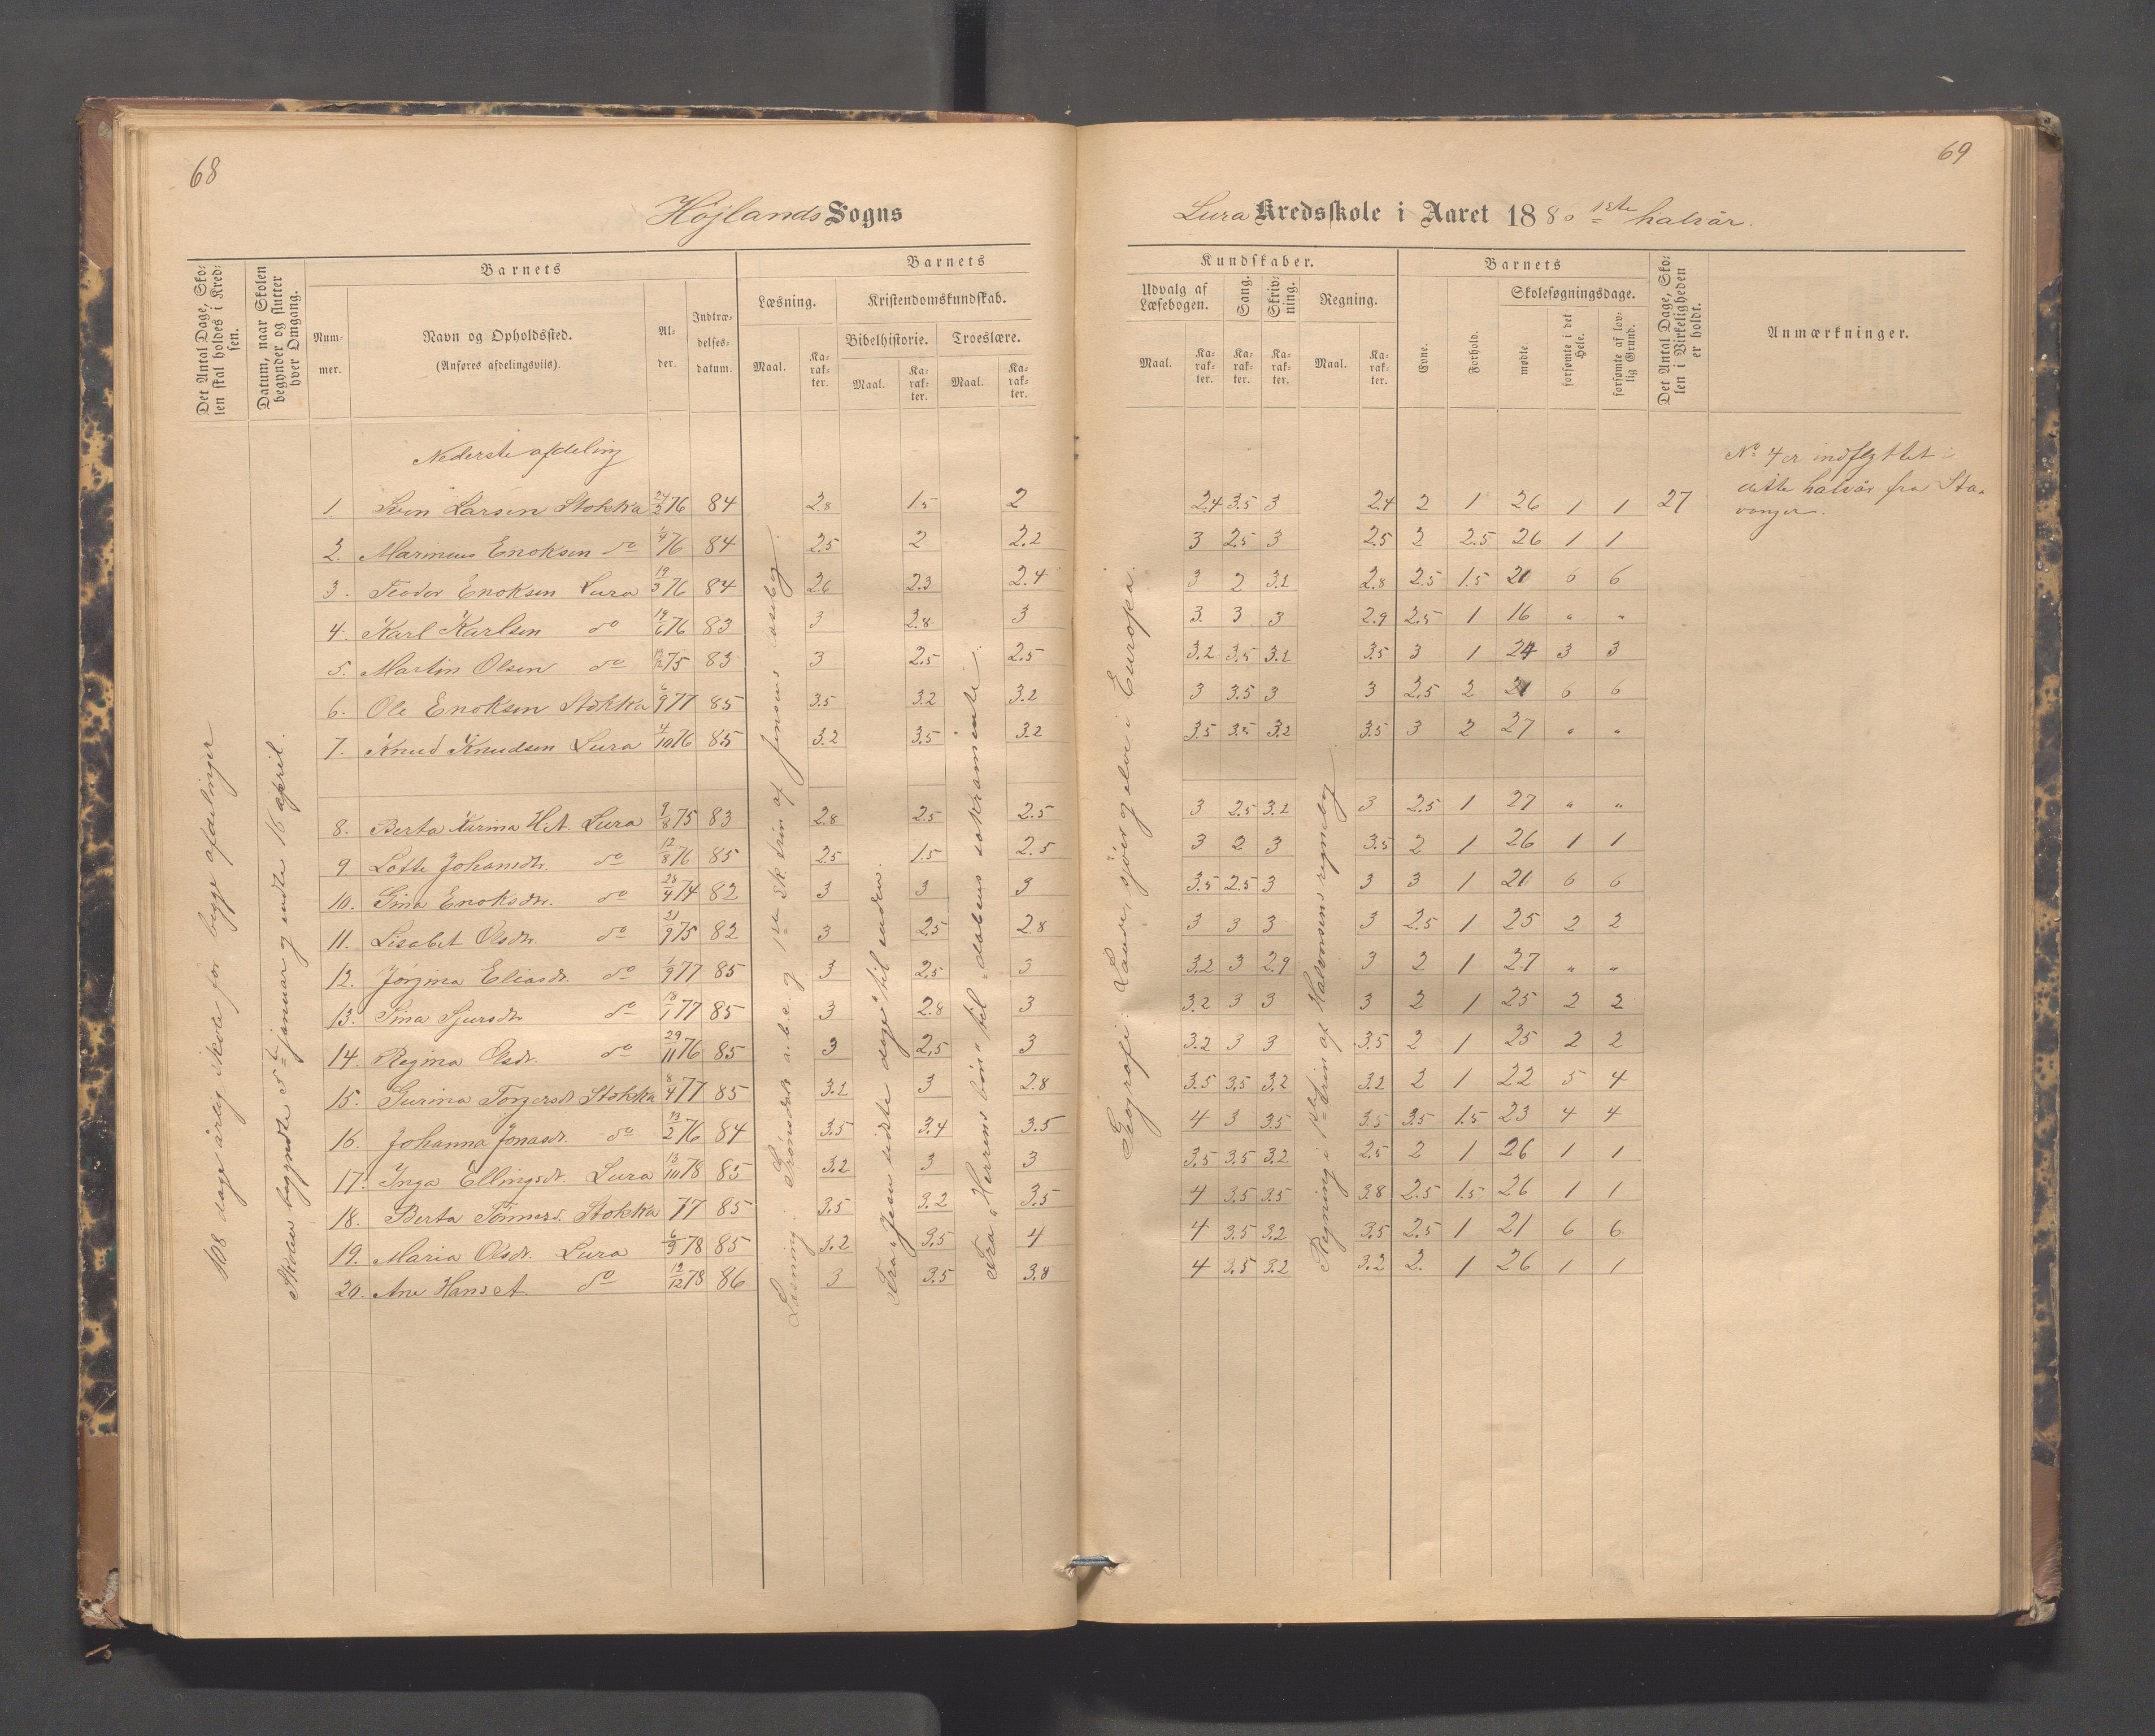 68
Höjlands Sogns
Det Antal Dage, Sko-
len skal holdes i Kred-
sen.
Datum, naar Skolen
begynder og slutter
hver Omgang.
Barnets
Num-
mer.
Navn og Opholdssted.
(Anføres afdelingsviis).
Al-
der.
Indtræ-
delses-
datum.
Barnets
Læsning.
Kristendomskundskab.
Bibelhistorie.
Troeslære.
Maal.
Ka-
rak-
ter.
Maal.
Ka-
rak-
ter.
Maal.
Ka-
rak-
ter.
108 dage årlig skole for begge afdelinger
Skolen begyndte 5te januar og endte 16 april.
Nederste afdeling
1. Sven Larsen Stokka 24/2 76 84 2.8 1.5 2
2. Marineus Enoksen do 1/4 76 84 2.5 2 2.2
3. Teodor Enoksen Lura 19/3 76 84 2.6 2.3 2.4
4. Karl Karlsen do 19/6 76 83 3 2.8 3
5. Martin Olsen do 75 83 3 2.5 2.5
6. Ole Enoksen Stokka 6/9 77 85 3.5 3.2 3.2
7. Knud Knudsen Lura 4/10 76 85 3.2 3.5 3.2
8. Berta Karina H.A. Lura 9/8 75 83 2.8 2.5 2.5
9 Lotte Johansdtr. do 12/8 76 85 2.5 1.5 2.5
10. Sina Enoksdtr. do 28/4 74 82 3 3 3
11. Lisabet Olsdtr. do 21/9 75 82 3 2.5 2.8
12. Jörgina Eliasdr. do 1/9 77 85 3 2.5 3
13. Sina Sjursdtr do 18/1 77 85 3 2.8 3
14. Regina Olsdr. do 29/11 76 85 3 2.5 3
15. Gurina Torgersdr Stokka 8/4 77 85 3.2 3 2.8
16. Johanna Jonasdr. do 13/2 76 84 3.5 3.4 3.5
17. Inga Ellingsdr. Lura 13/10 78 85 3.2 3 3
18. Berta Tönnesd. Stokka 77 85 3.5 3.2 3.5
19. Maria Olsdr. Lura 6/9 78 85 3.2 3.5 4
20. Ane Hans A. do 12/12 78 86 3 3.5 3.8
Læsning: a.b.c. og 1ste Sk. trin af Jensens læsebog.
Fra "Jesu sidste dage" til enden.
Fra "Herrens bön" til "dåbens sakramente".
69
Lura Kredsskole i Aaret 1886 1ste halvår.
Kundskaber.
Udvalg af
Læsebogen.
Sang.
Skriv-
ning.
Regning.
Maal.
Ka-
rak-
ter.
Ka-
rak-
ter.
Ka-
rak-
ter.
Maal.
Ka-
rak-
ter.
Barnets
Evne.
Forhold.
Skolesøgningsdage.
mødte.
forsømte i det
Hele.
forsømte af lov-
lig Grund.
Det Antal Dage, Sko-
len i Virkeligheden
er holdt.
Anmærkninger.
Geografi: Lande, sjöer og elve i Europa.
Regning i 1ste trin af Halvorsens regnebog
2.4 3.5 3 2.4 2 1 26 1 1 27
3 2.5 3 2.5 2 2.5 26 1 1
3 2 3.2 2.8 2.5 1.5 21 6 6
3. 3 3 2.9 2.5 1 16 " "
3.2 3.5 3.2 3.5 3 1 24 3 3
3 3.5 3 3 2.5 2 21 6 6
3.5 3.5 3.2 3.5 3 2 27 " "
3 2.5 3.2 3 2.5 1 27 " "
3 2 3 3.5 2 1 26 1 1
3.5 2.5 3 3 3 1 21 6 6
3 3 3 3 2.5 1 25 2 2
3.2 3 2.9 3 2 1 27 " "
3.2 3 3 3 2 1 25 2 2
3.2 3 3 3.5 2 1 25 2 2
3.5 3.5 3.2 3.2 2 1 22 5 4
4 3 3.5 3.5 3.5 1.5 23 4 4
3.5 3.5 3.2 2.5 2 1 26 1 1
4 3.5 3.5 3.8 2.5 1.5 26 1 1
4 3.5 3.2 3.5 2.5 1 21 6 6
4 3.5 3.2 3.2 2. 1 26 1 1
No 4 er indflyttet i
dette halvår fra Sta-
vanger.